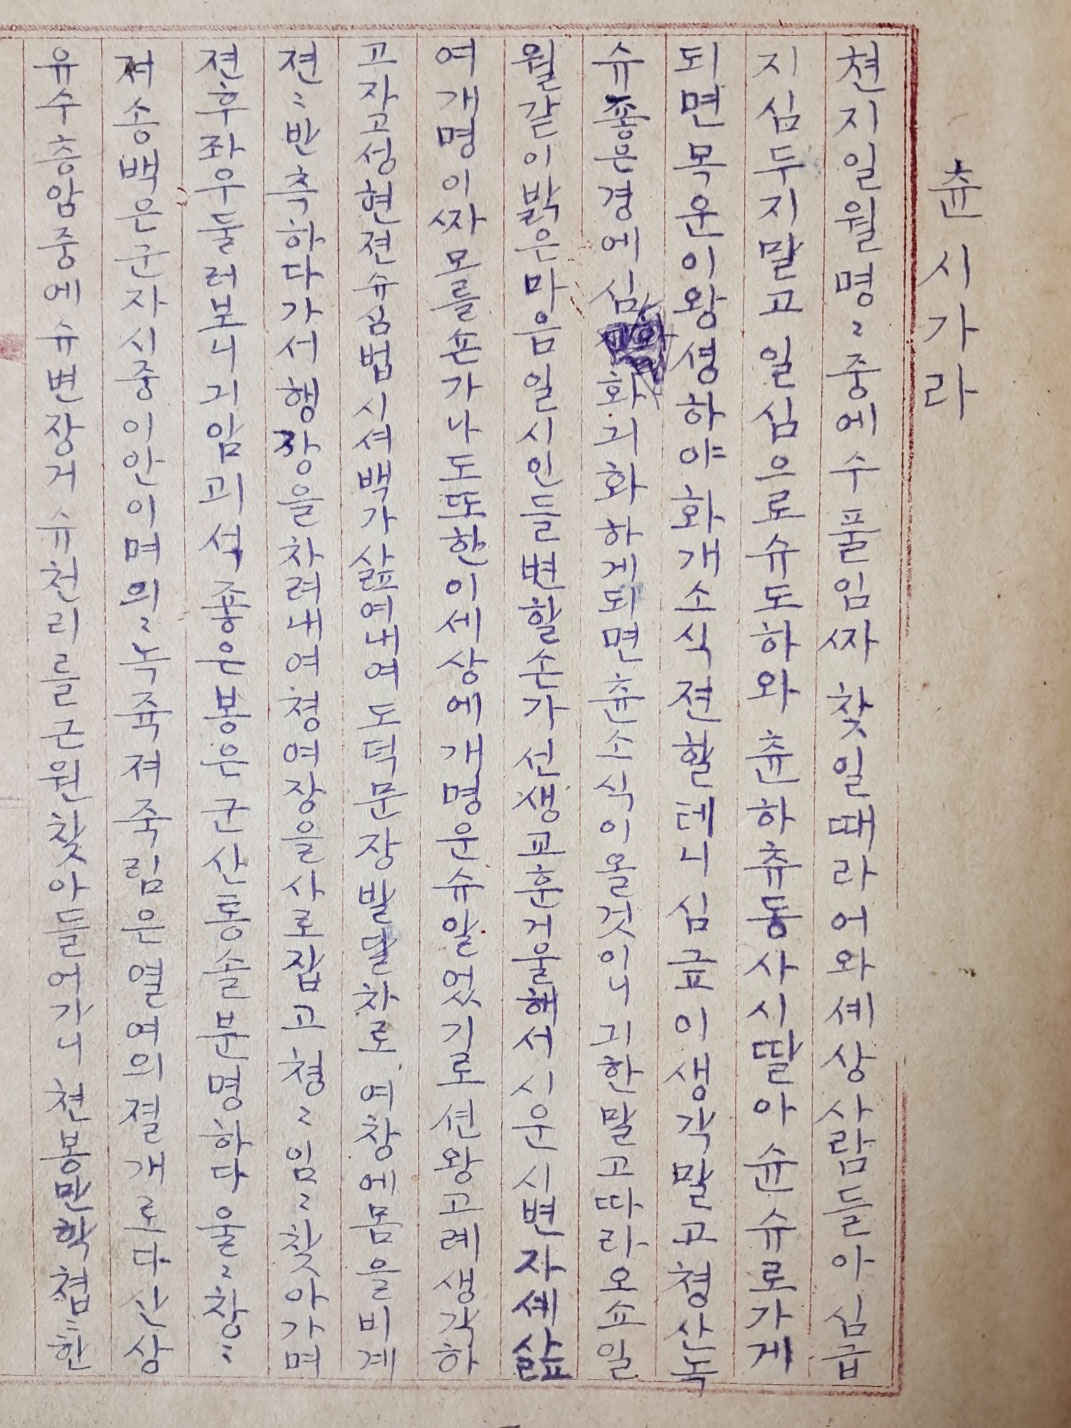 츈시가라
쳔지일월명〻중에수풀임짜찾일때라어와셰상사람들아심급
지심두지말고일심으로슈도하와츈하츄동사시딸아슌슈로가게
되면목운이왕셩하야화개소식젼할테니심급이생각말고쳥산녹
슈좋은경에심화긔화하게되면츈소식이올것이니긔한말고따라오소일
월갈이밝은마음일시인들변할손가션생교훈거울해서시운시변자셰삶
여개명이짜모를손가나도또한이세상에개명운슈알엇기로션왕고례생각하
고자고성현젼슈심법시셔백가삶여내여도덕문장발딸차로여창에몸을비계
젼〻반측하다가서행장을차려내여쳥여장을사로잡고쳡〻임〻찾아가며
젼후좌우둘러보니긔암괴석좋은봉은군산통솔분명하다울〻창〻
져송백은군자시중이안이며의〻녹쥭져죽림은열여의졀개로다산상
유수층암중에슈변장거슈쳔리를근원찾아들어가니쳔봉만학쳡〻한